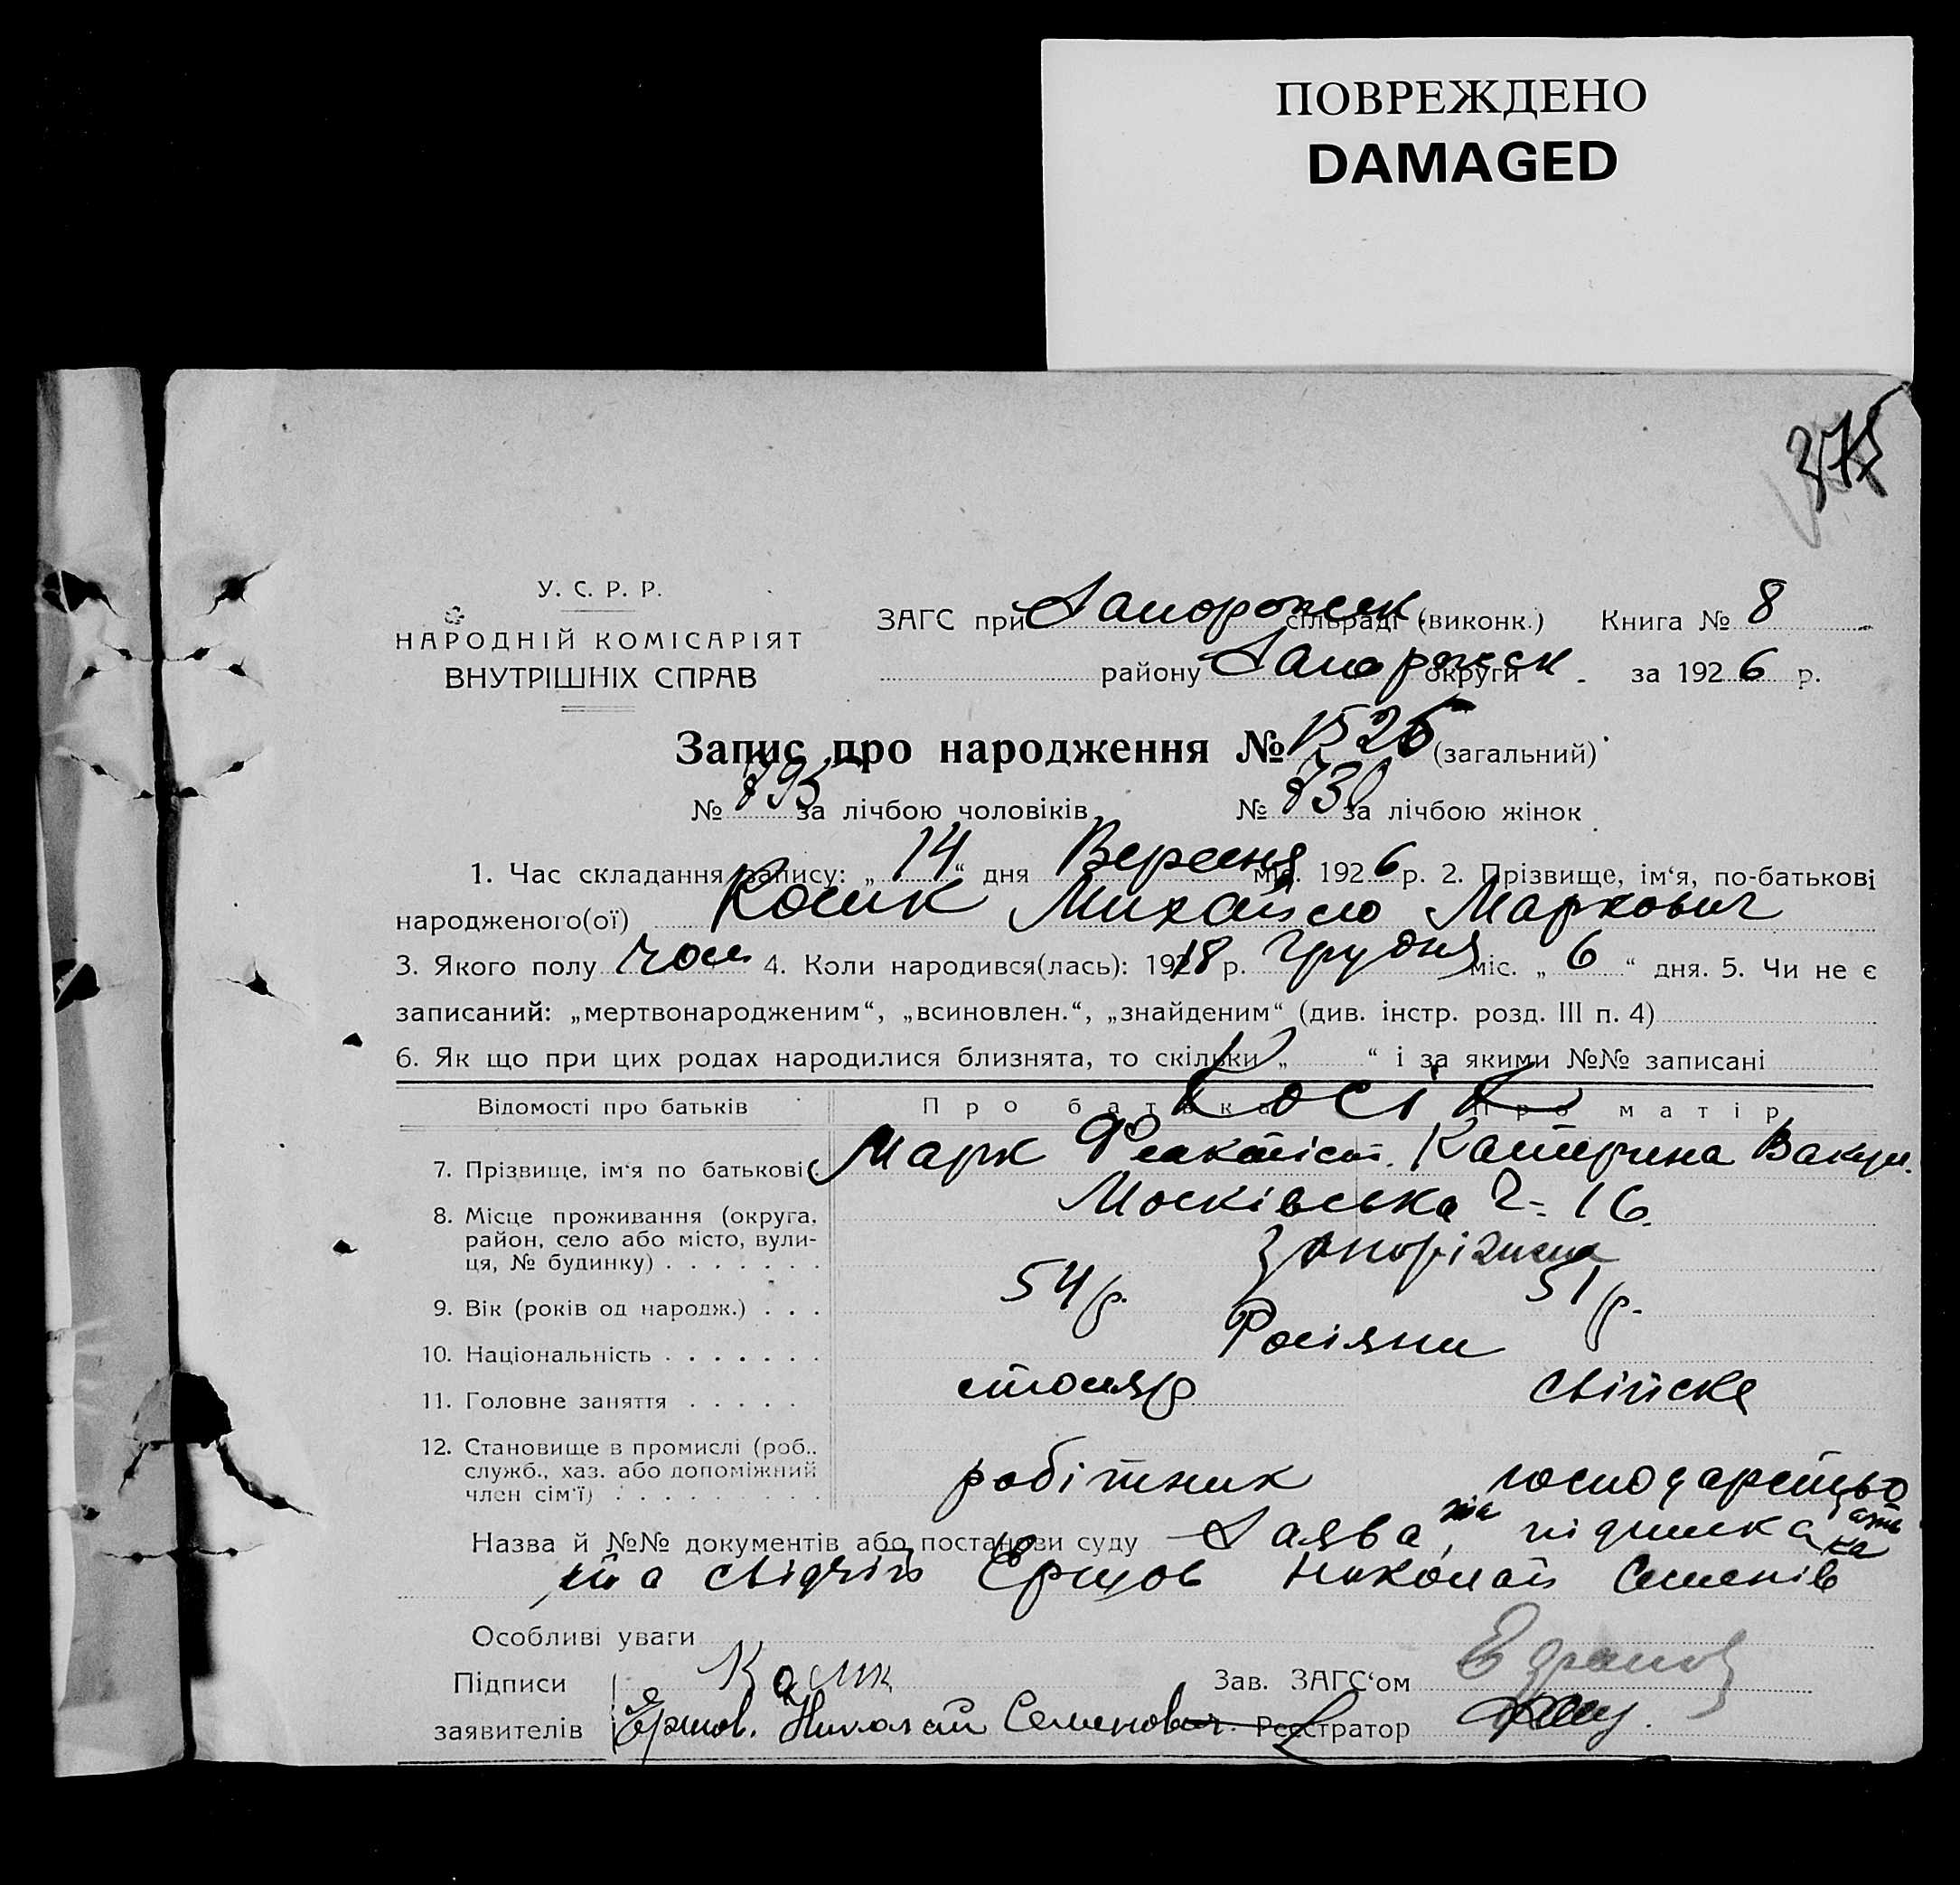 ПОВРЕЖДЕНО
DAMAGED
375
У. С. Р. Р.
НАРОДНІЙ КОМІСАРІЯТ
ВНУТРІШНІХ СПРАВ
ЗАГС при Запорожськ. сільраді (виконк.) Книга № 8
району Запорожськ. округи за 1926 р.
Запис про народження № 1525 (загальний)
№ 895 за лічбою чоловіків № 730 за лічбою жінок
1. Час складання запису: „14“ дня Вересня міс. 1926 р. 2. Прізвище, ім‘я, по-батькові
народженого(ої) Косик Михайло Маркович
3. Якого полу чол 4. Коли народився(лась): 1918 р. Грудня міс. „6“ дня. 5. Чи не є
записаний: „мертвонародженим“, „всиновлен.“, „знайденим“ (див. інстр. розд. III п. 4)
6. Як що при цих родах народилися близнята, то скільки „ “ і за якими №№ записані
Відомості про батьків Про батька Про матір
Косік
7. Прізвище, ім‘я по батькові Марк Феактіст. Катерина Вакул.
8. Місце проживання (округа, район, село або місто, вулиця, № будинку) Московська ч= 16.
Запоріжжя
9. Вік (років од народж.) 54 р. 51 р.
10. Національність Росіяни
11. Головне заняття столяр свійске
12. Становище в промислі (роб., служб., хаз. або допоміжний член сім‘ї) робітник господарство
Назва й №№ документів або постанови суду Заява, підписка
та свідчів Ершов Николай Семенів
Особливі уваги
Підписи Косик Зав. ЗАГС‘ом
заявителів Ершов. Николай Семенович Реєстратор